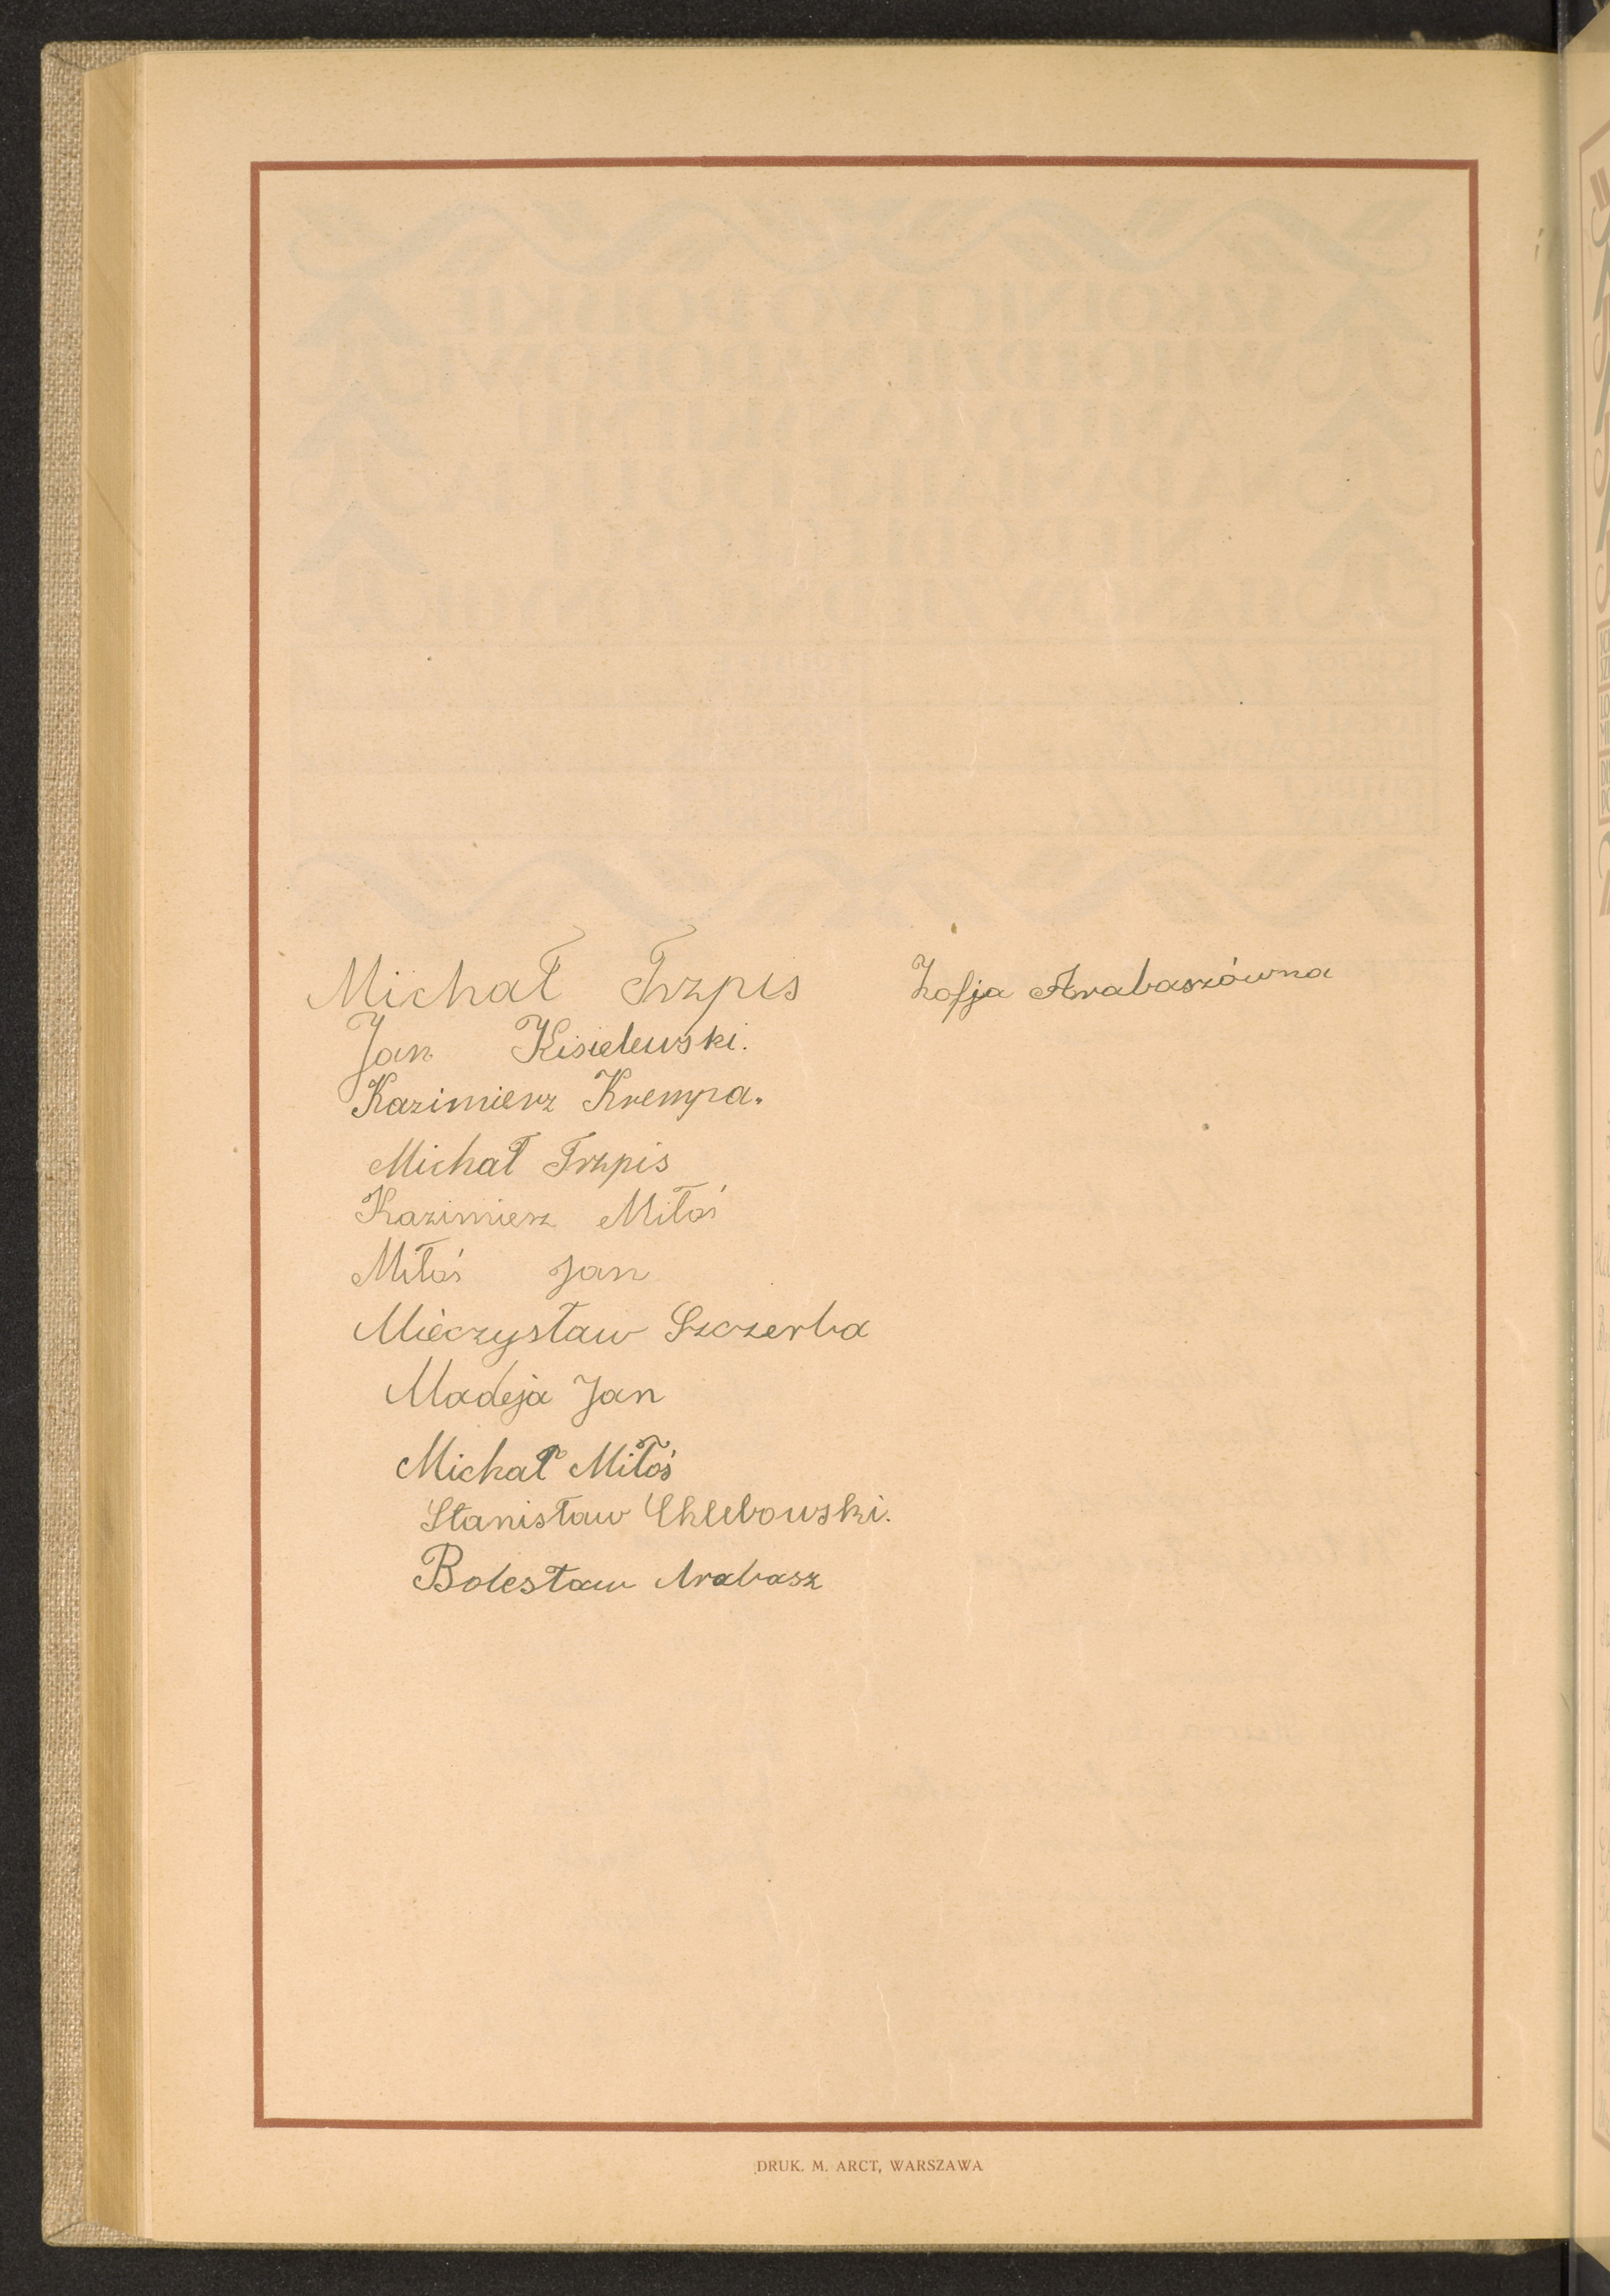 Michał Trzpis
Jan Kisielewski.
Kazimierz Krempa.
Michał Trzpis
Kazimierz Miłoś
Miłoś Jan
Mieczysław Szczerba
Madeja Jan
Michał Miłoś
Stanisław Chlebowski.
Bolesław Arabasz
Zofja Arabaszówna
DRUK. M. ARCT, WARSZAWA